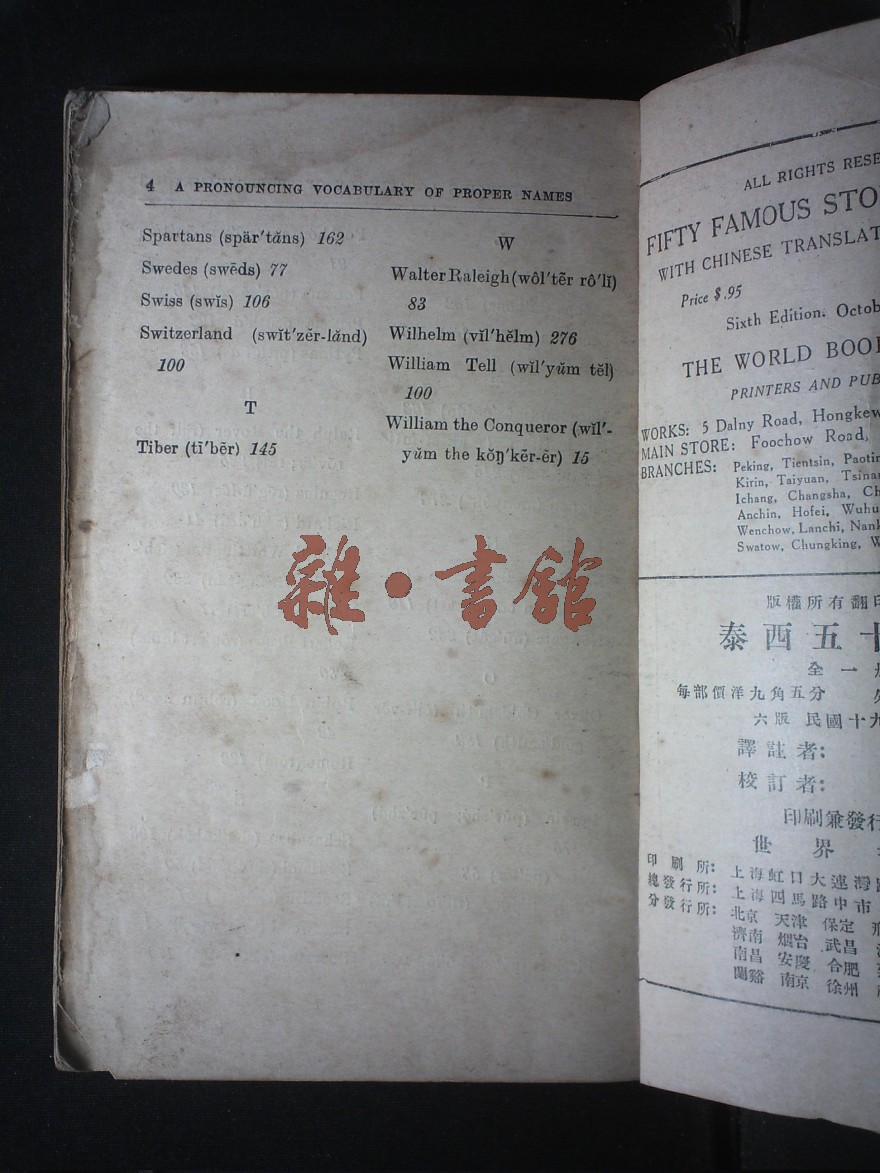 4 A PRONOUNCING VOCABULARY OF PROPER NAMES
Spartans (spär'tăns) 162
Swedes (swēds) 77
Swiss (swĭs) 106
Switzerland (swĭt'zẽr-lănd)
100
T
Tiber (tī'bẽr) 145
W
Walter Raleigh (wôl'tẽr rô'lĭ)
83
Wilhelm (vĭl'hĕlm) 276
William Tell (wĭl'yŭm tĕl)
100
William the Conqueror (wĭl'-
yŭm the kŏŋ'kẽr-ẽr) 15
雜·書館
ALL RIGHTS RESE
FIFTY FAMOUS STO
WITH CHINESE TRANSLAT
Price $.95
Sixth Edition. Octob
THE WORLD BOO
PRINTERS AND PUB
WORKS: 5 Dalny Road, Hongkew
MAIN STORE: Foochow Road,
BRANCHES: Peking, Tientsin, Paotin
Kirin, Taiyuan, Tsinan
Ichang, Changsha, Ch
Anchin, Hofei, Wuhu
Wenchow, Lanchi, Nank
Swatow, Chungking, W
版權所有翻印
泰西五十
全一
每部價洋九角五分
六版 民國十九
譯註者:
校訂者:
印刷兼發行
世界
印刷所: 上海虹口大連灣路
總發行所: 上海四馬路中市
分發行所: 北京 天津 保定
濟南 烟台 武昌
南昌 安慶 合肥
蘭谿 南京 徐州